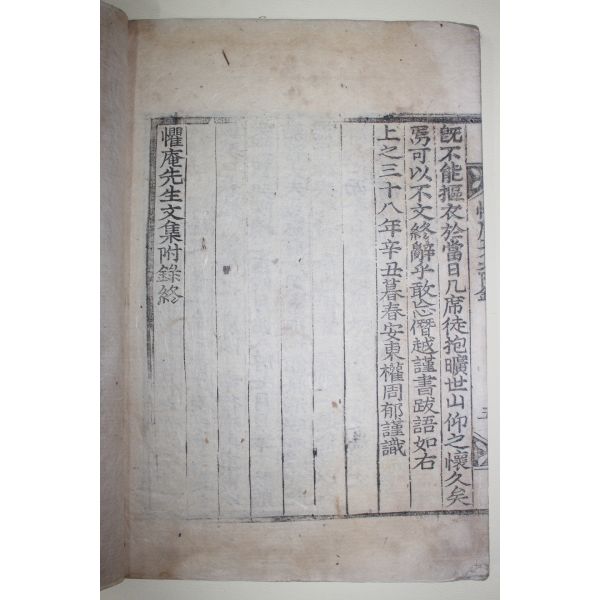 既不能摳衣於當日几席徒抱曠世山仰之懷久矣
焉可以不文終辭乎敢忘僭越謹書跋語如右
上之三十八年辛丑暮春安東權周郁謹識
懼庵先生文集附錄終